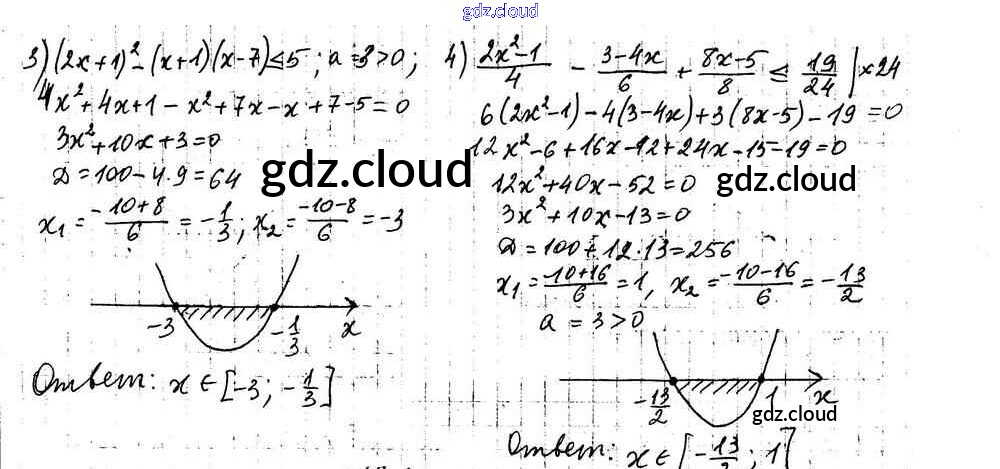 gdz.cloud
3) (2x+1)² - (x+1)(x-7) ≤ 5; a = 3 > 0;
4x² + 4x + 1 - x² + 7x - x + 7 - 5 = 0
3x² + 10x + 3 = 0
D = 100 - 4·9 = 64
x₁ = (-10+8)/6 = -1/3; x₂ = (-10-8)/6 = -3
gdz.cloud
-3 -1/3 x
Ответ: x ∈ [-3; -1/3]
4) (2x²-1)/4 - (3-4x)/6 + (8x-5)/8 ≤ 19/24 | ×24
6(2x²-1) - 4(3-4x) + 3(8x-5) - 19 = 0
12x² - 6 + 16x - 12 + 24x - 15 - 19 = 0
12x² + 40x - 52 = 0
gdz.cloud
3x² + 10x - 13 = 0
D = 100 + 12·13 = 256
x₁ = (-10+16)/6 = 1, x₂ = (-10-16)/6 = -13/2
a = 3 > 0
-13/2 1 x
gdz.cloud
Ответ: x ∈ [-13/2; 1]